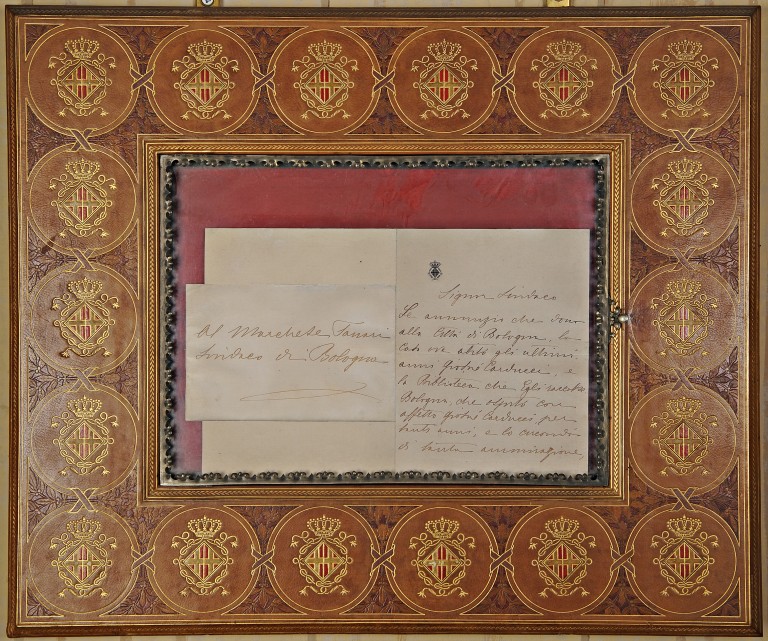 Al Marchese Tanari
Sindaco di Bologna
Signor Sindaco
Le annunzio che dono
alla Città di Bologna, la
Casa ove abitò gli ultimi
anni Giosuè Carducci, e
la Biblioteca che Egli raccolse
Bologna, che ospitò con
affetto Giosuè Carducci per
tanti anni, e lo circondò
di tanta ammirazione,